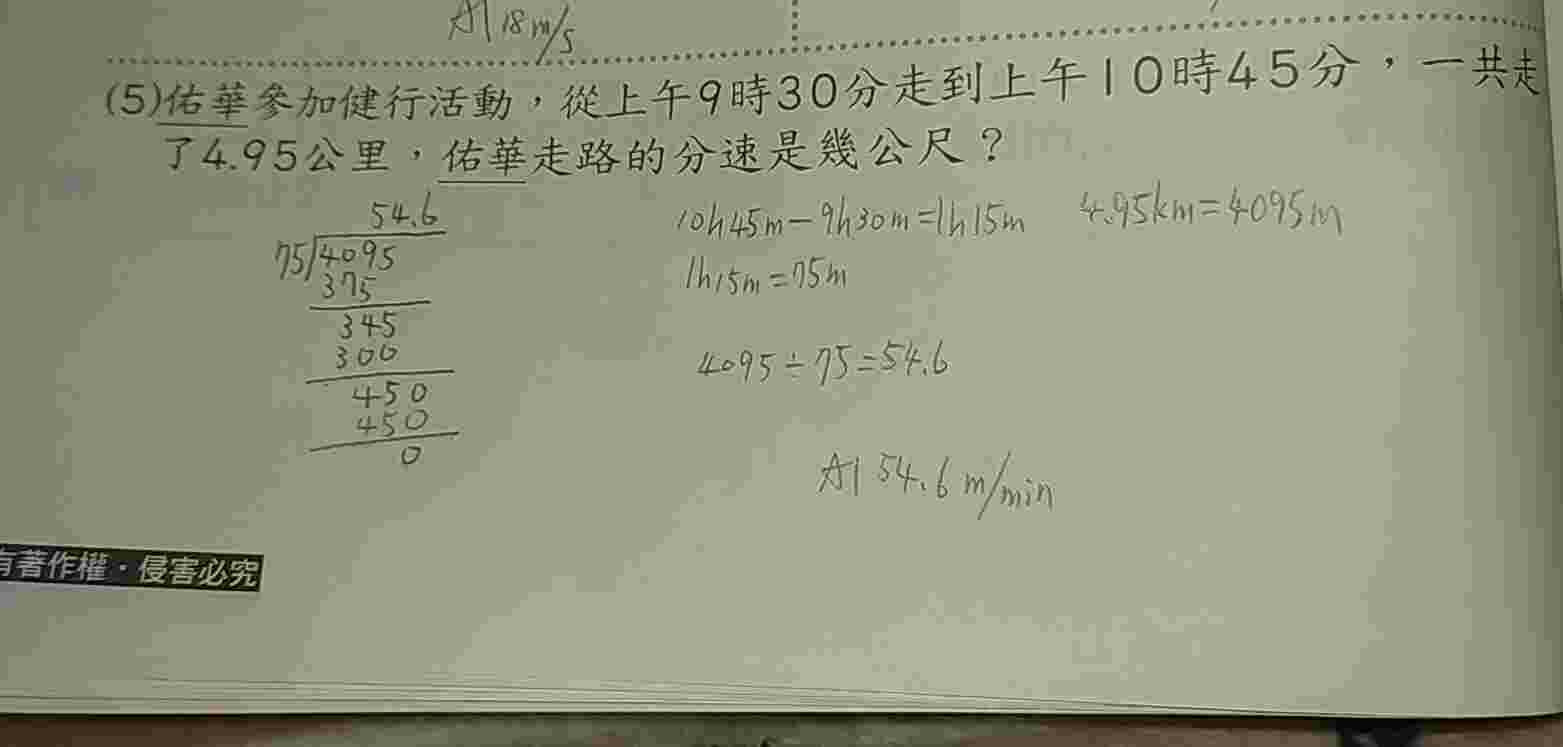 A| 18m/s
(5)佑華參加健行活動，從上午9時30分走到上午10時45分，一共走
了4.95公里，佑華走路的分速是幾公尺？
54.6
75 4095
375
345
300
450
450
0
10h45m-9h30m=1h15m
4.95km=4095m
1h15m=75m
4095÷75=54.6
A| 54.6 m/min
有著作權·侵害必究